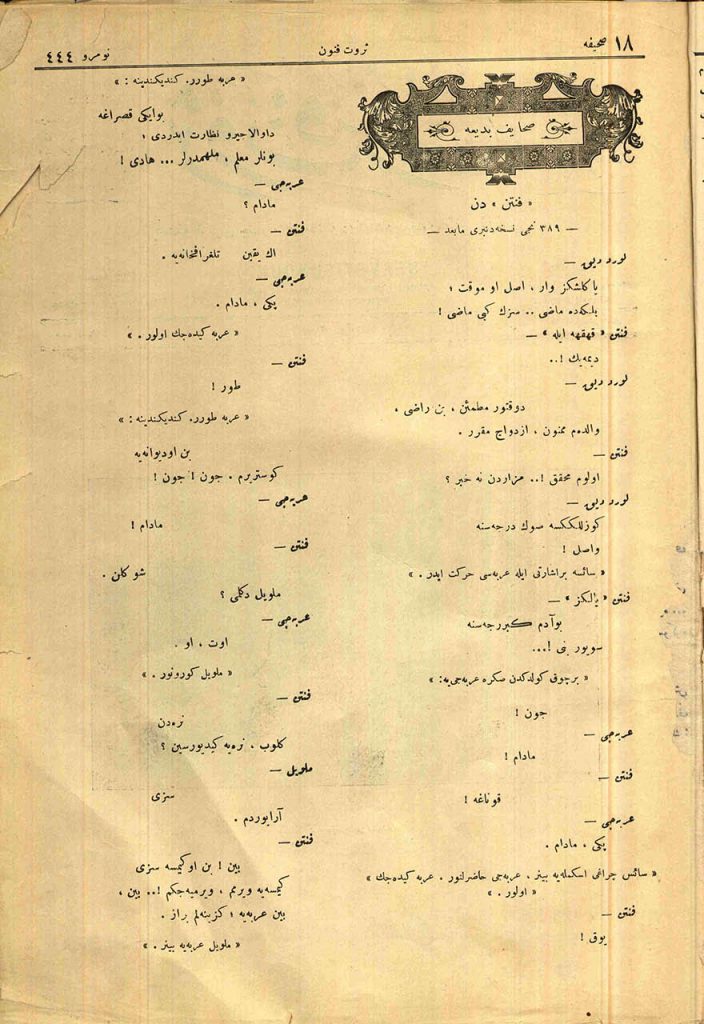 ١٨ صحيفه
ثروت فنون
نومرو ٤٤٤
صحايف بديعه
« فنتن » دن
— ٣٨٩ نجى نسخه‌دنبرى مابعد —
لورد ويق —
ياكاشكز وار ، اصل او موقت ؛
بلكه‌ده ماضى .. سزك كبى ماضى !
فنتن « قهقهه ايله » —
ديمه‌يك !..
لورد ويق —
دوقتور مطمئن ، بن راضى ،
والده‌م ممنون ، ازدواج مقرر .
فنتن —
اولوم محقق !.. مزاردن نه خبر ؟
لورد ويق —
كوزللككسه صوك درجه‌سنه
واصل !
« سائسه براشارتى ايله عربه‌سى حركت ايدر . »
فنتن « يالكز » —
بوآدم كبررجه‌سنه
سويور بنى !...
« برچوق كولدكدن صكره عربه‌جى‌يه: »
جون !
عربه‌جى —
مادام !
فنتن —
قوناغه !
عربه‌جى —
پكى ، مادام .
« سائس چراغى اسكمله‌يه بينر ، عربه‌جى حاضرلنور . عربه كيده‌جك »
« اولور . »
فنتن —
يوق !
« عربه طورر. كنديكندينه : »
بوايكى قصراغه
داوالاجيرو نظارت ايدردى ؛
بونلر معلم ، ملهمدرلر ... هادى !
عربه‌جى —
مادام ؟
فنتن —
اك يقين تلغرافخانه‌يه .
عربه‌جى —
پكى ، مادام .
« عربه كيده‌جك اولور . »
فنتن —
طور !
« عربه طورر. كنديكندينه : »
بن اوديوانه‌يه
كوستريرم . جون ! جون !
عربه‌جى —
مادام !
فنتن —
شو كلن .
ملويل دكلى ؟
عربه‌جى —
اوت ، او .
« ملويل كورونور . »
فنتن —
نره‌دن
كلوب ، نره‌يه كيديورسين ؟
ملويل —
سزى
آرايوردم .
فنتن —
بين ! بن اوكيمسه سزى
كيمسه‌يه ويرمم ، ويرميه‌جكم !.. بين ،
بين عربه‌يه ؛ كزينه‌لم براز .
« ملويل عربه‌يه بينر . »